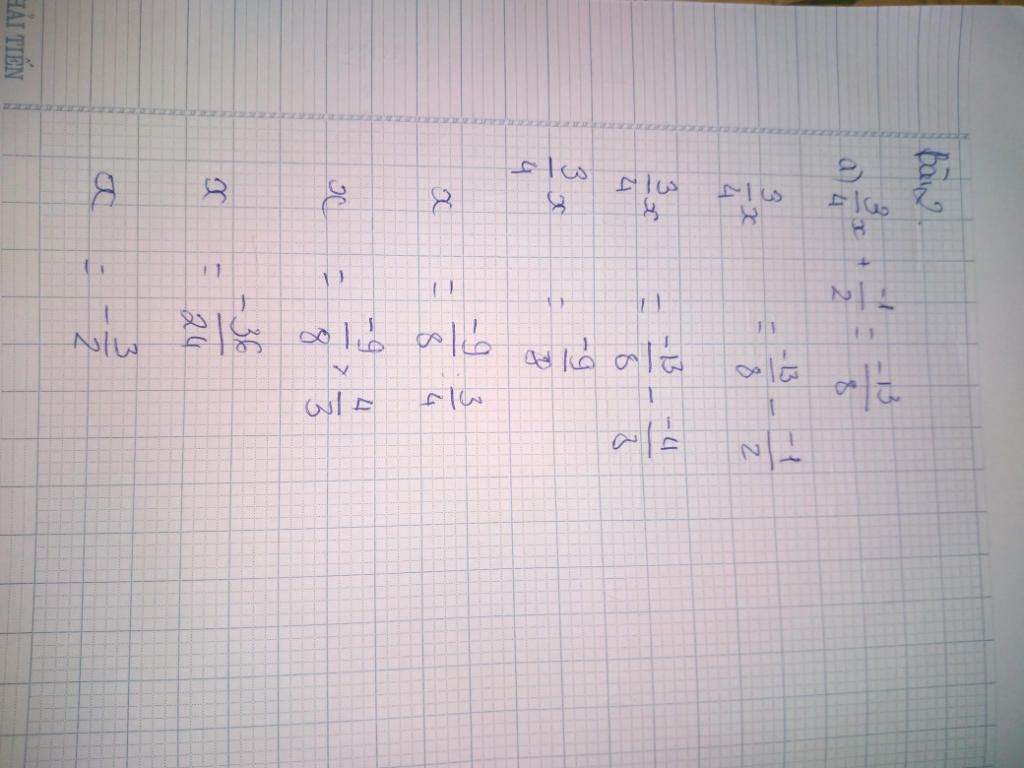 HẢI TIẾN
Bài 2.
a) 3/4 x + -1/2 = -13/8
3/4 x = -13/8 - -1/2
3/4 x = -13/8 - -4/8
3/4 x = -9/8
x = -9/8 : 3/4
x = -9/8 × 4/3
x = -36/24
x = -3/2